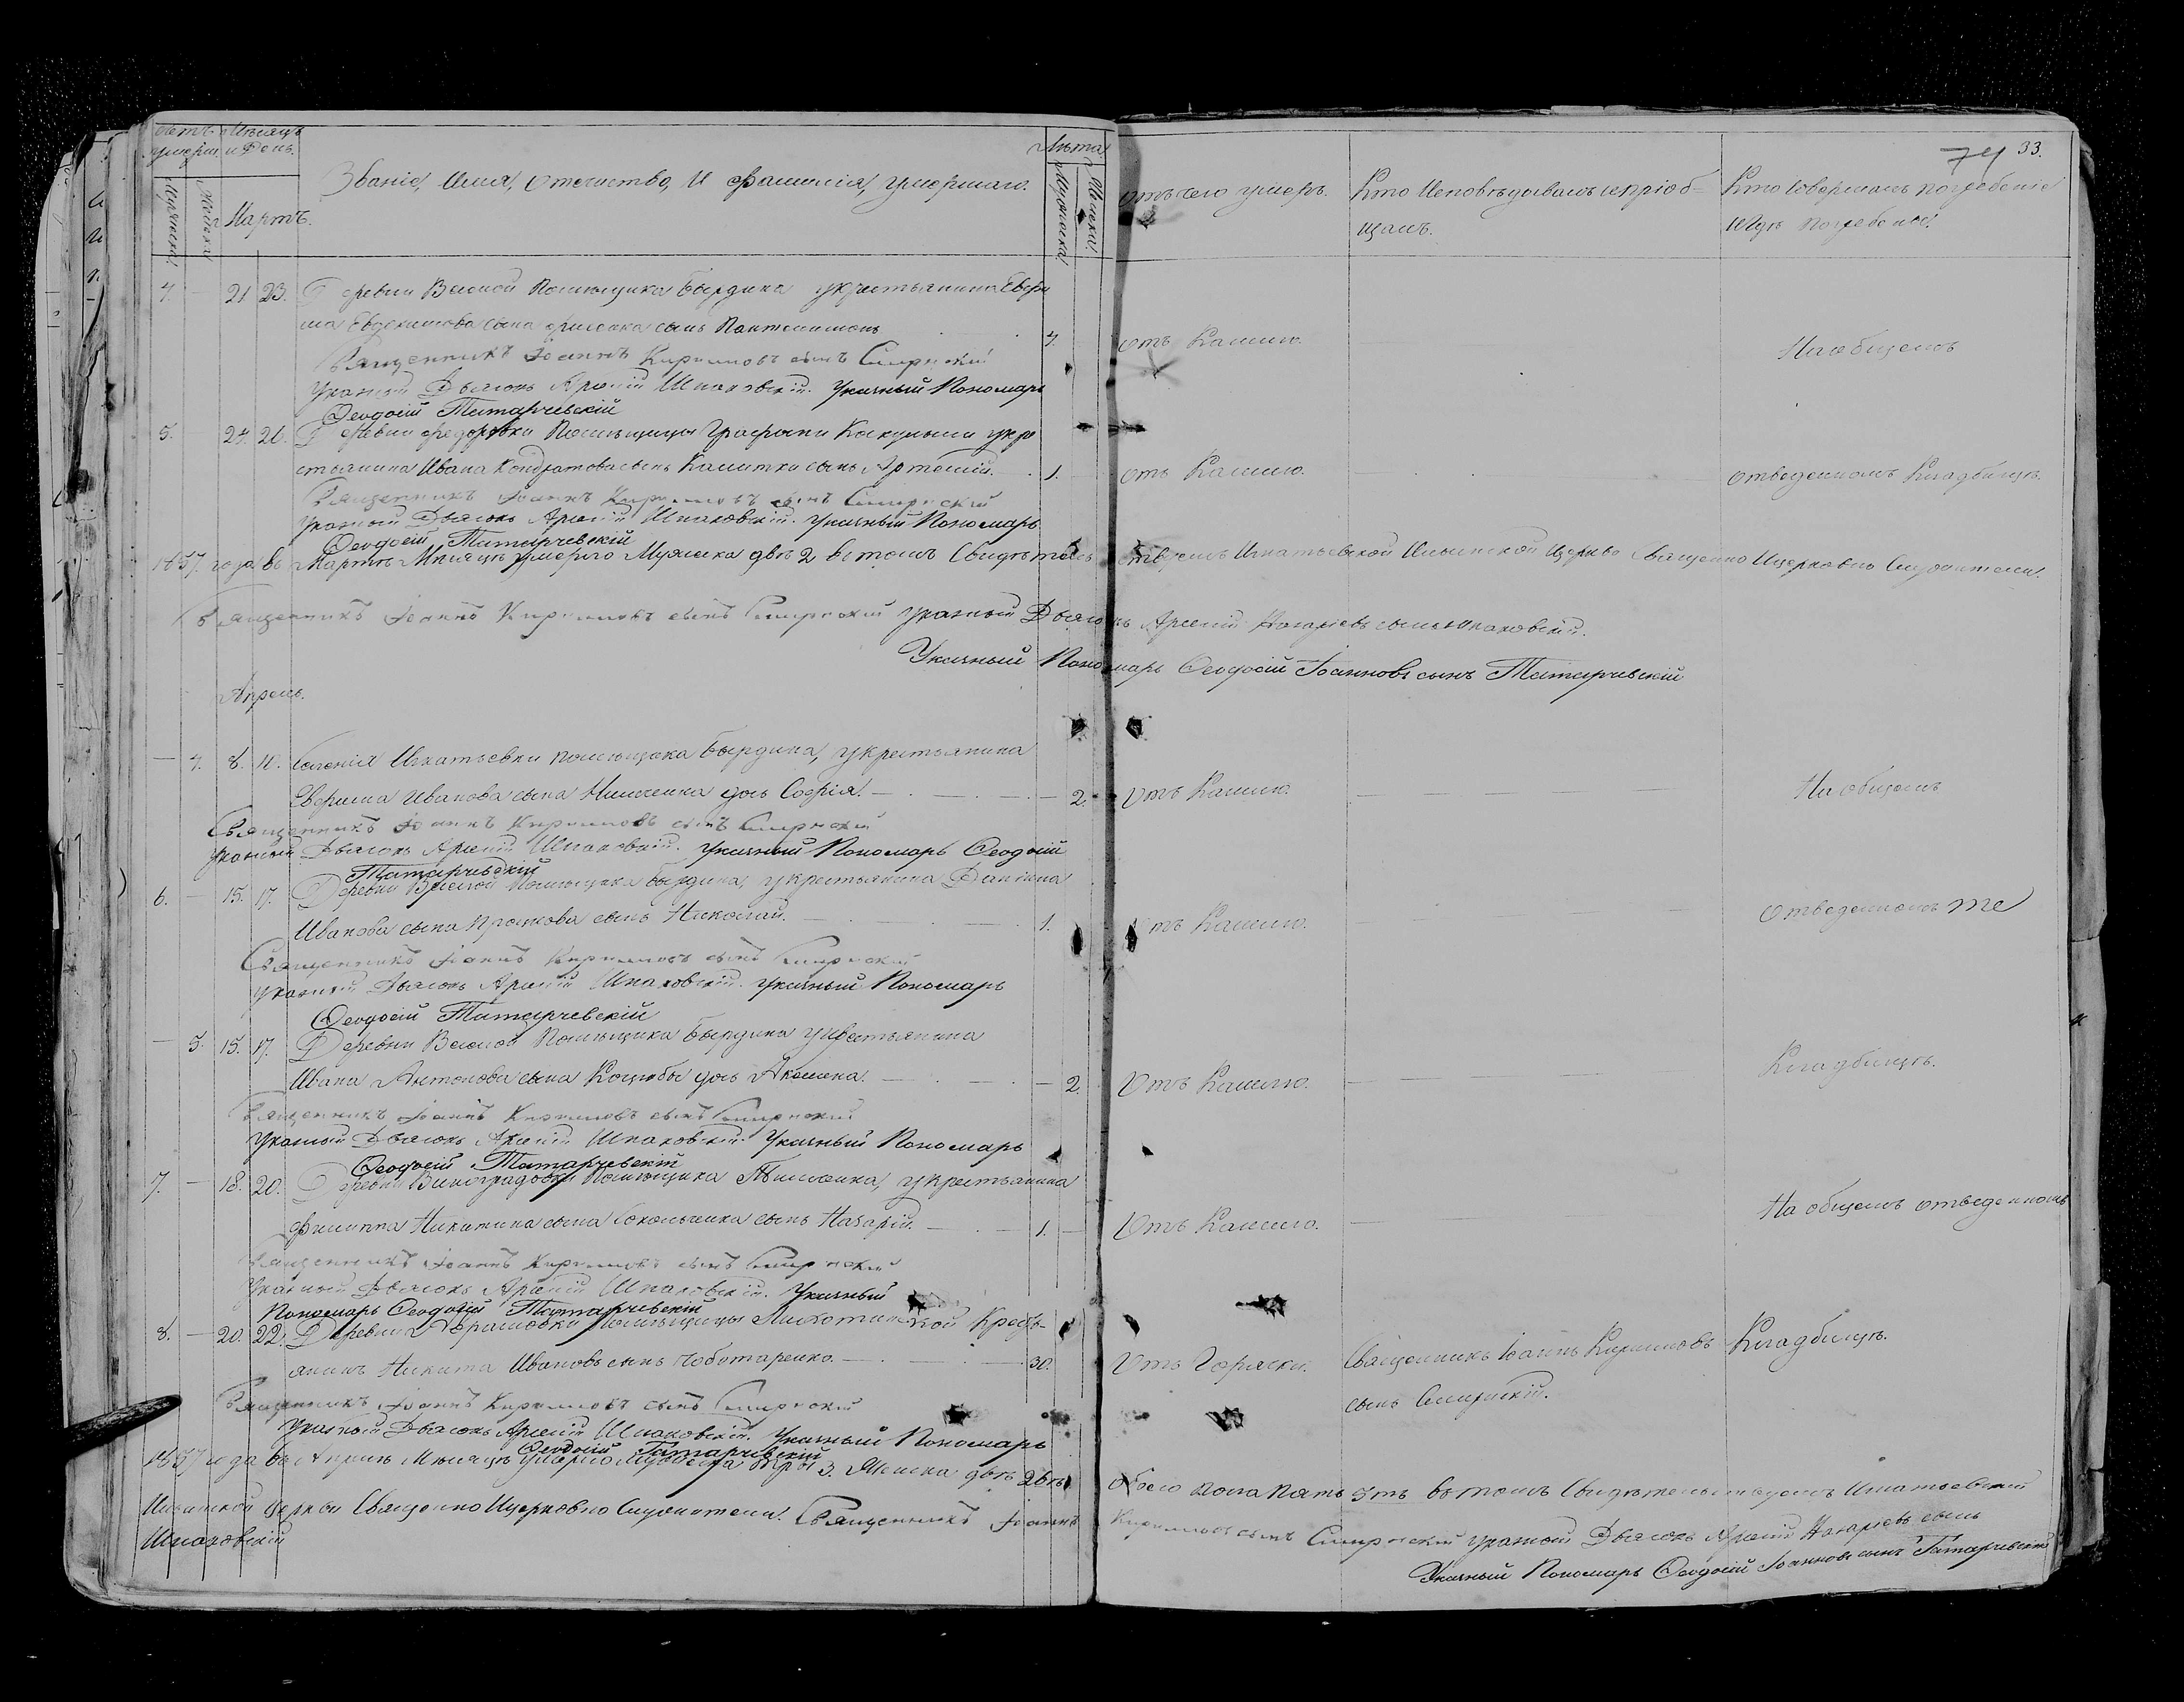 Счетъ умерш.
Мѣсяцъ и День.
Мужеска.
Женска
Мартъ.
Званіе, Имя, Отечество, И Фамилія, умершаго.
Лѣта
Мужеска.
Женска.
отъ чего умеръ.
Кто Исповѣдывалъ и пріоб-
щалъ.
Кто Совершалъ погребеніе
и Гдѣ погребены.
74 33.
4. — 21 23. Деревни Веселой Помѣщика Бырдина укрестьянина
Евдокимова сына сынъ Пантелимонъ 4. отъ Кашлю. На общемъ
Священникъ Іоаннъ Кирилловъ сынъ
Указный Дьячокъ Арсеній Шпаковскій. Указный Пономарь
Ѳеодосій Татарчевскій
5. 24. 26. Деревни Федоровки Помѣщицы укре
стьянина Ивана Кондратова сына Калитки сынъ Артемій. 1. отъ Кашлю. отведенномъ Кладбищѣ.
Священникъ Іоаннъ Кирилловъ сынъ
Указный Дьячокъ Арсеній Шпаковскій. Указный Пономарь
Ѳеодосій Татарчевскій
1857 года въ Мартѣ Мѣсяцѣ умерло Мужеска двѣ 2 въ томъ Свидѣтельствуемъ Игнатьевской Ильинской Церкви Священно Ицерковно Служители.
Священникъ Іоаннъ Кирилловъ сынъ указный Дьячокъ Арсеній Назаріевъ сынъ Шпаковскій.
Указный Пономарь Ѳеодосій Іоанновъ сынъ Татарчевскій
Апрель.
— 4. 8. 10. Селенія Игнатьевки помѣщика Бырдина, укрестьянина
Иванова сына дочь Софія. — 2. Отъ Кашлю. На общемъ
Священникъ Іоаннъ Кирилловъ сынъ
Указный Дьячокъ Арсеній Шпаковскій. Указный Пономарь Ѳеодосій
Татарчевскій
6. — 15. 17. Деревни Веселой Помѣщика Бырдина, укрестьянина
Иванова сына сынъ Николай. 1. Отъ Кашлю. Отведенномъ же
Священникъ Іоаннъ Кирилловъ сынъ
Указный Дьячокъ Арсеній Шпаковскій. Указный Пономарь
Ѳеодосій Татарчевскій
— 5. 15. 17. Деревни Веселой Помѣщика Бырдина укрестьянина
Ивана Антонова сына Коцюбы дочь — 2 Отъ Кашлю. Кладбищѣ.
Священникъ Іоаннъ Кирилловъ сынъ
Указный Дьячокъ Арсеній Шпаковскій. Указный Пономарь
Ѳеодосій Татарчевскій
7. — 18. 20. Деревни Виноградовки Помѣщика укрестьянина
Филиппа Никитина сына Сокольченка сынъ Назарій. 1. — Отъ Кашлю. На общемъ отведенномъ
Священникъ Іоаннъ Кирилловъ сынъ
Указный Дьячокъ Арсеній Шпаковскій. Указный
Пономарь Ѳеодосій Татарчевскій
8. — 20. 22. Деревни Абрамовки Помѣщицы Кресть-
янинъ Никита Ивановъ сынъ Чоботаренко. 30. Отъ Горячки. Священникъ Іоаннъ Кирилловъ Кладбищѣ.
сынъ
Священникъ Іоаннъ Кирилловъ сынъ
Указный Дьячокъ Арсеній Шпаковскій. Указный Пономарь
Ѳеодосій Татарчевскій
1857 года въ Априлѣ Мѣсяцѣ умерло Мужеска три 3. Женска двѣ 2 обоего пола Пять 5ть въ томъ Свидѣтельствуемъ Игнатьевской
Ильинской Церкви Священно Ицерковно Служители. Священникъ Іоаннъ Кирилловъ сынъ указный Дьячокъ Арсеній Назаріевъ сынъ
Шпаковскій
Указный Пономарь Ѳеодосій Іоанновъ сынъ Татарчевскій